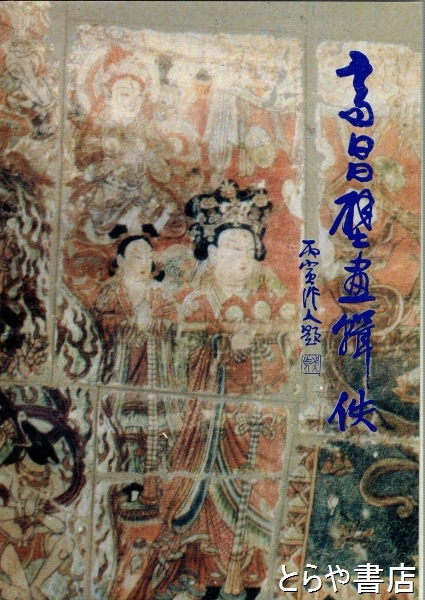 高昌壁畫輯佚
丙寅作人題
とらや書店